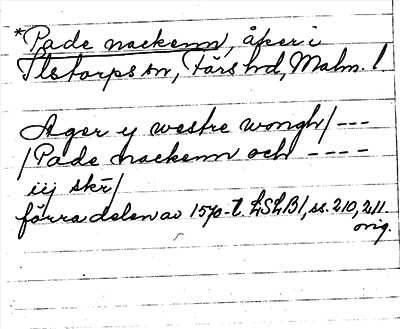 *Pade nackenn, åker i
Ilstorps sn, Färs hd, Malm. l
Ager y westre wongh/ ---
/Pade nackenn och ----
iij skr/
förra delen av 1570-t. LSLB1, ss. 210, 211
orig.